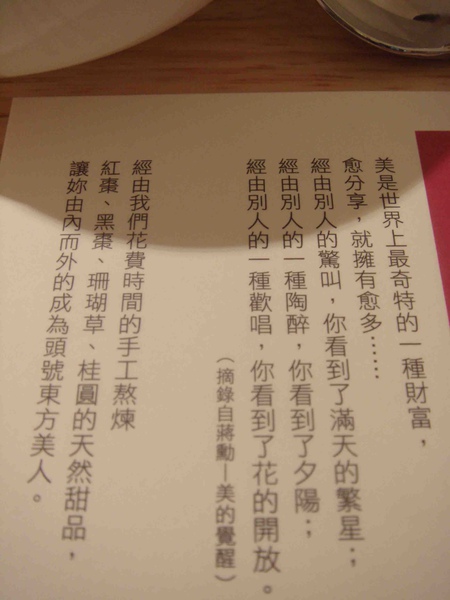 美是世界上最奇特的一種財富，
愈分享，就擁有愈多……
經由別人的驚叫，你看到了滿天的繁星；
經由別人的一種陶醉，你看到了夕陽；
經由別人的一種歡唱，你看到了花的開放。
（摘錄自蔣勳—美的覺醒）
經由我們花費時間的手工熬煉
紅棗、黑棗、珊瑚草、桂圓的天然甜品，
讓妳由內而外的成為頭號東方美人。